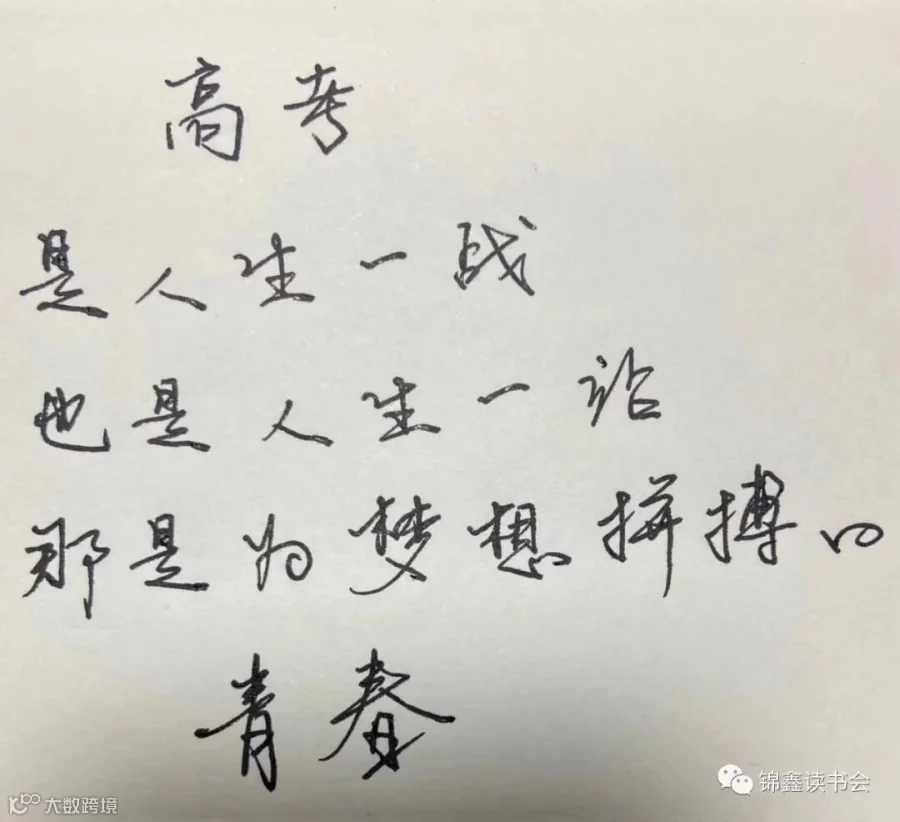 高考
是人生一战
也是人生一站
那是为梦想拼搏的
青春
锦鑫读书会
大数跨境